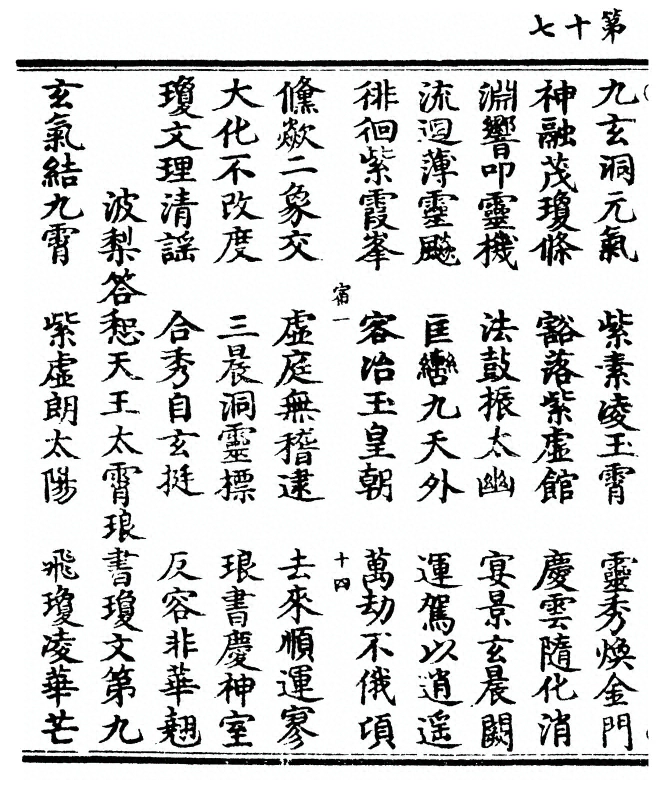 第十七
九玄洞元氣　紫素凌玉霄　靈秀煥金門
神融茂瓊條　豁落紫虛館　慶雲隨化消
淵響叩靈機　法鼓振太幽　宴景玄晨闕
流迴薄靈飈　匡轡九天外　運駕以逍遥
徘徊紫霞峯　容冶玉皇朝　萬劫不俄項
宿一　十四
儵歘二象交　虛庭無稽逮　去來順運寥
大化不改度　三晨洞靈標　琅書慶神室
瓊文理清謡　合秀自玄挺　反容非華翹
波梨答惒天王太霄琅書瓊文第九
玄氣結九霄　紫虛朗太陽　飛瓊凌華芒